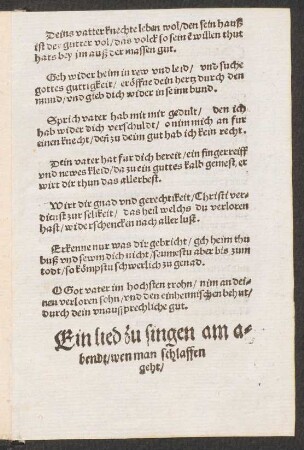 Deins vatter knechte leben wol/den sein hauß
ist der gutter vol/das volck so sein ē willen thut
hats bey im auß der massen gut.
Geh wider heim in rew vnd leid/ vnd suche
gottes guttigkeit/ eröffne dein hertz durch den
mund/vnd gieb dich wider in seinn bund.
Sprich vater hab mit mir gedult/ den ich
hab wider dich verschuldt/ o nim mich an fur
einen knecht/deñ zu deim gut hab ich kein recht.
Dein vater hat fur dich bereit/ein fingerreiff
vnd newes kleid/da zu ein guttes kalb gemest/er
wirt dir thun das allerbest.
Wirt dir gnad vnd gerechtikeit/Christi ver-
dienst zur selikeit/ das heil welchs du verloren
hast/widerschencken nach aller lust.
Erkenne nur was dir gebricht/ geh heim thu
buß vnd sewm dich nicht/seumestu aber bis zum
todt/so kömpstu schwerlich zu genad.
O Got vater im hochsten trohn/nim an dei-
nen verloren sohn/vnd den einheimischen behut/
durch dein vnaussprechliche gut.
Ein lied zu singen am a-
bendt/wen man schlaffen
geht/